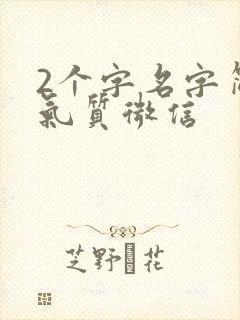 2个字名字简
氣质微信
芝野�花